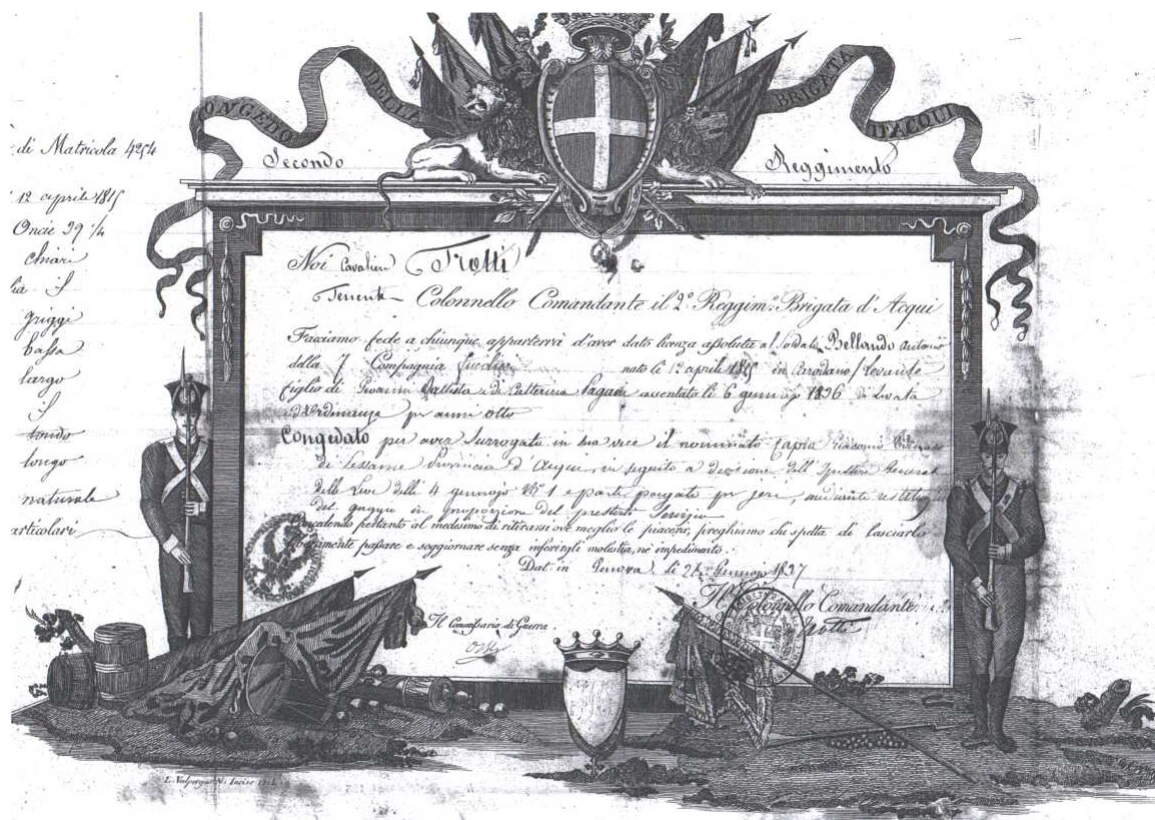 CONGEDO DELLA BRIGATA D'ACQUI
Secondo Reggimento
di Matricola 4254
12 aprile 1815
Oncie 39 1/4
chiari
griggi
bassa
largo
tondo
longo
naturale
articolari
Noi Cavaliere Trotti
Tenente Colonnello Comandante il 2.º Reggim.º Brigata d'Acqui
Facciamo fede a chiunque apparterrà d'aver dato licenza assoluta al Soldato Bellando Antonio
della 7 Compagnia nato li 12 aprile 1815 in Levante
figlio di Giovanni Battista e di Catterina assentato li 6 gennajo 1836 di Levata
d'ordinanza per anni otto
Congedato per aver surrogato in sua vece il nominato Capra Giacomo
di Sessame Provincia d'Acqui, in seguito a decisione dell'
delle Leve delli 4 gennajo
del in proporzione del prestato servizio
Concedendo pertanto al medesimo di ritirarsi ove meglio le piacerà, preghiamo chi spetta di lasciarlo
liberamente passare e soggiornare senza inferirgli molestia, nè impedimento.
Dat. in Genova li Gennajo 1837
Il Colonnello Comandante
Trotti
Il Commissario di Guerra